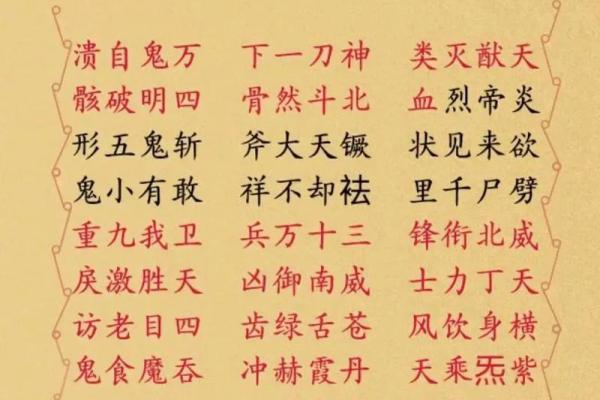 溃自鬼万 下一刀神 类灭猷天
骸破明四 骨然斗北 血烈帝炎
形五鬼斩 斧大天镢 状见来欲
鬼小有敢 祥不却袪 里千尸劈
重九我卫 兵万十三 锋衔北威
戾激胜天 凶御南威 士力丁天
访老目四 齿绿舌苍 风饮身横
鬼食魔吞 冲赫霞丹 天乘炁紫